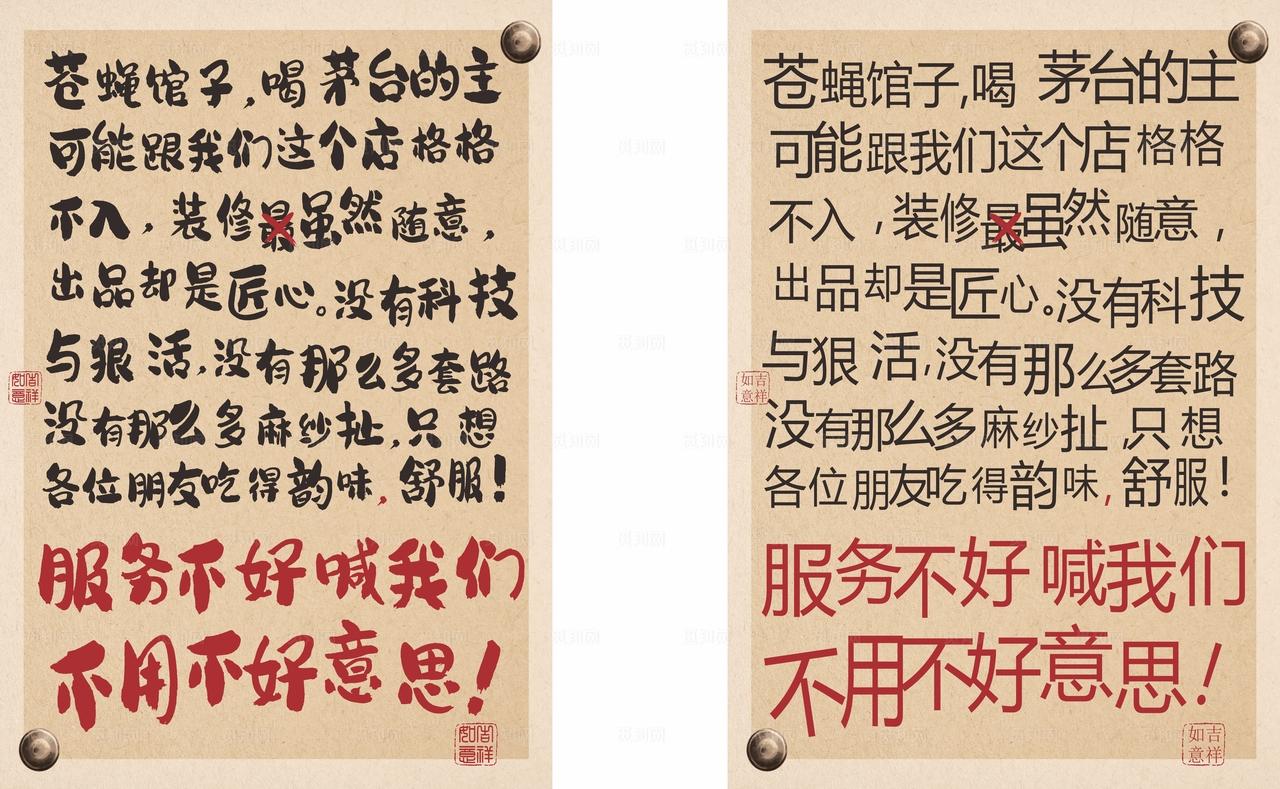 苍蝇馆子,喝茅台的主
可能跟我们这个店格格
不入,装修最虽然随意,
出品却是匠心。没有科技
与狠活,没有那么多套路
没有那么多麻纱扯,只想
各位朋友吃得韵味,舒服!
服务不好喊我们
不用不好意思!
吉祥如意
吉祥如意
苍蝇馆子,喝茅台的主
可能跟我们这个店格格
不入,装修最虽然随意,
出品却是匠心。没有科技
与狠活,没有那么多套路
没有那么多麻纱扯,只想
各位朋友吃得韵味,舒服!
服务不好喊我们
不用不好意思!
吉祥如意
吉祥如意